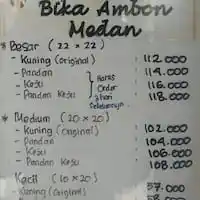 Bika Ambon
Medan
* Besar (22 x 22)
- Kuning (original) : 112.000
- Pandan : 114.000
- Keju : 116.000
- Pandan Keju : 118.000
Harus
Order
Sebelumnya
* Medium (20 x 20)
- Kuning (original) : 102.000
- Pandan : 104.000
- Keju : 106.000
- Pandan Keju : 108.000
Kecil (10 x 20)
- Kuning (original) 57.000